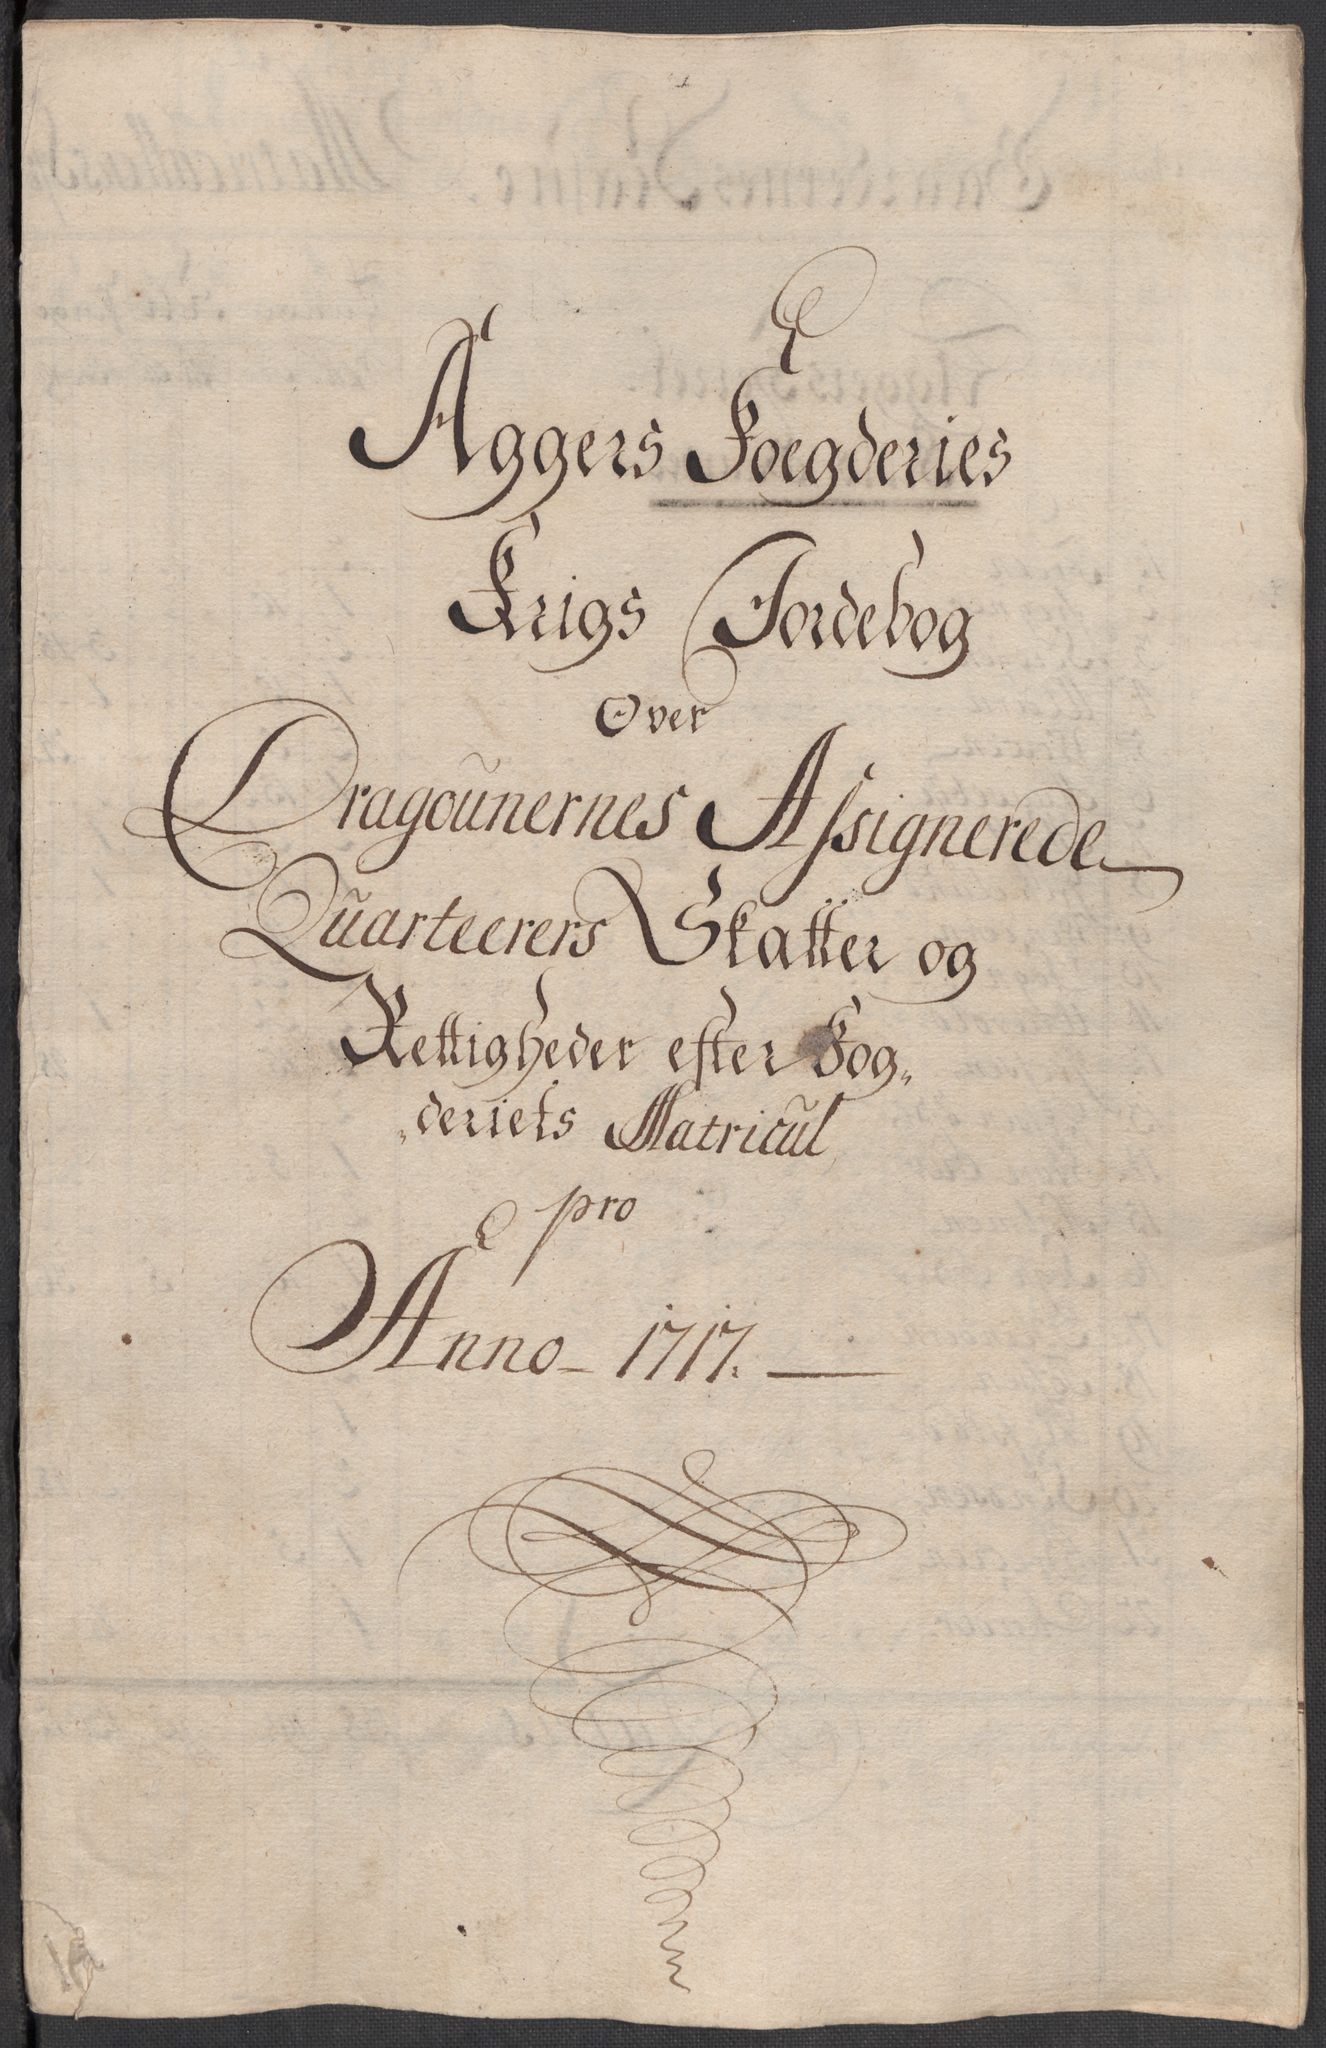 Aggers Foegderies
Krigs Jordebog
Over
Dragoünernes Assignerede
Qüarteerers Skatter og
Rettigheder efter Fog„
„deriets Matricül
pro
Anno - 1717.